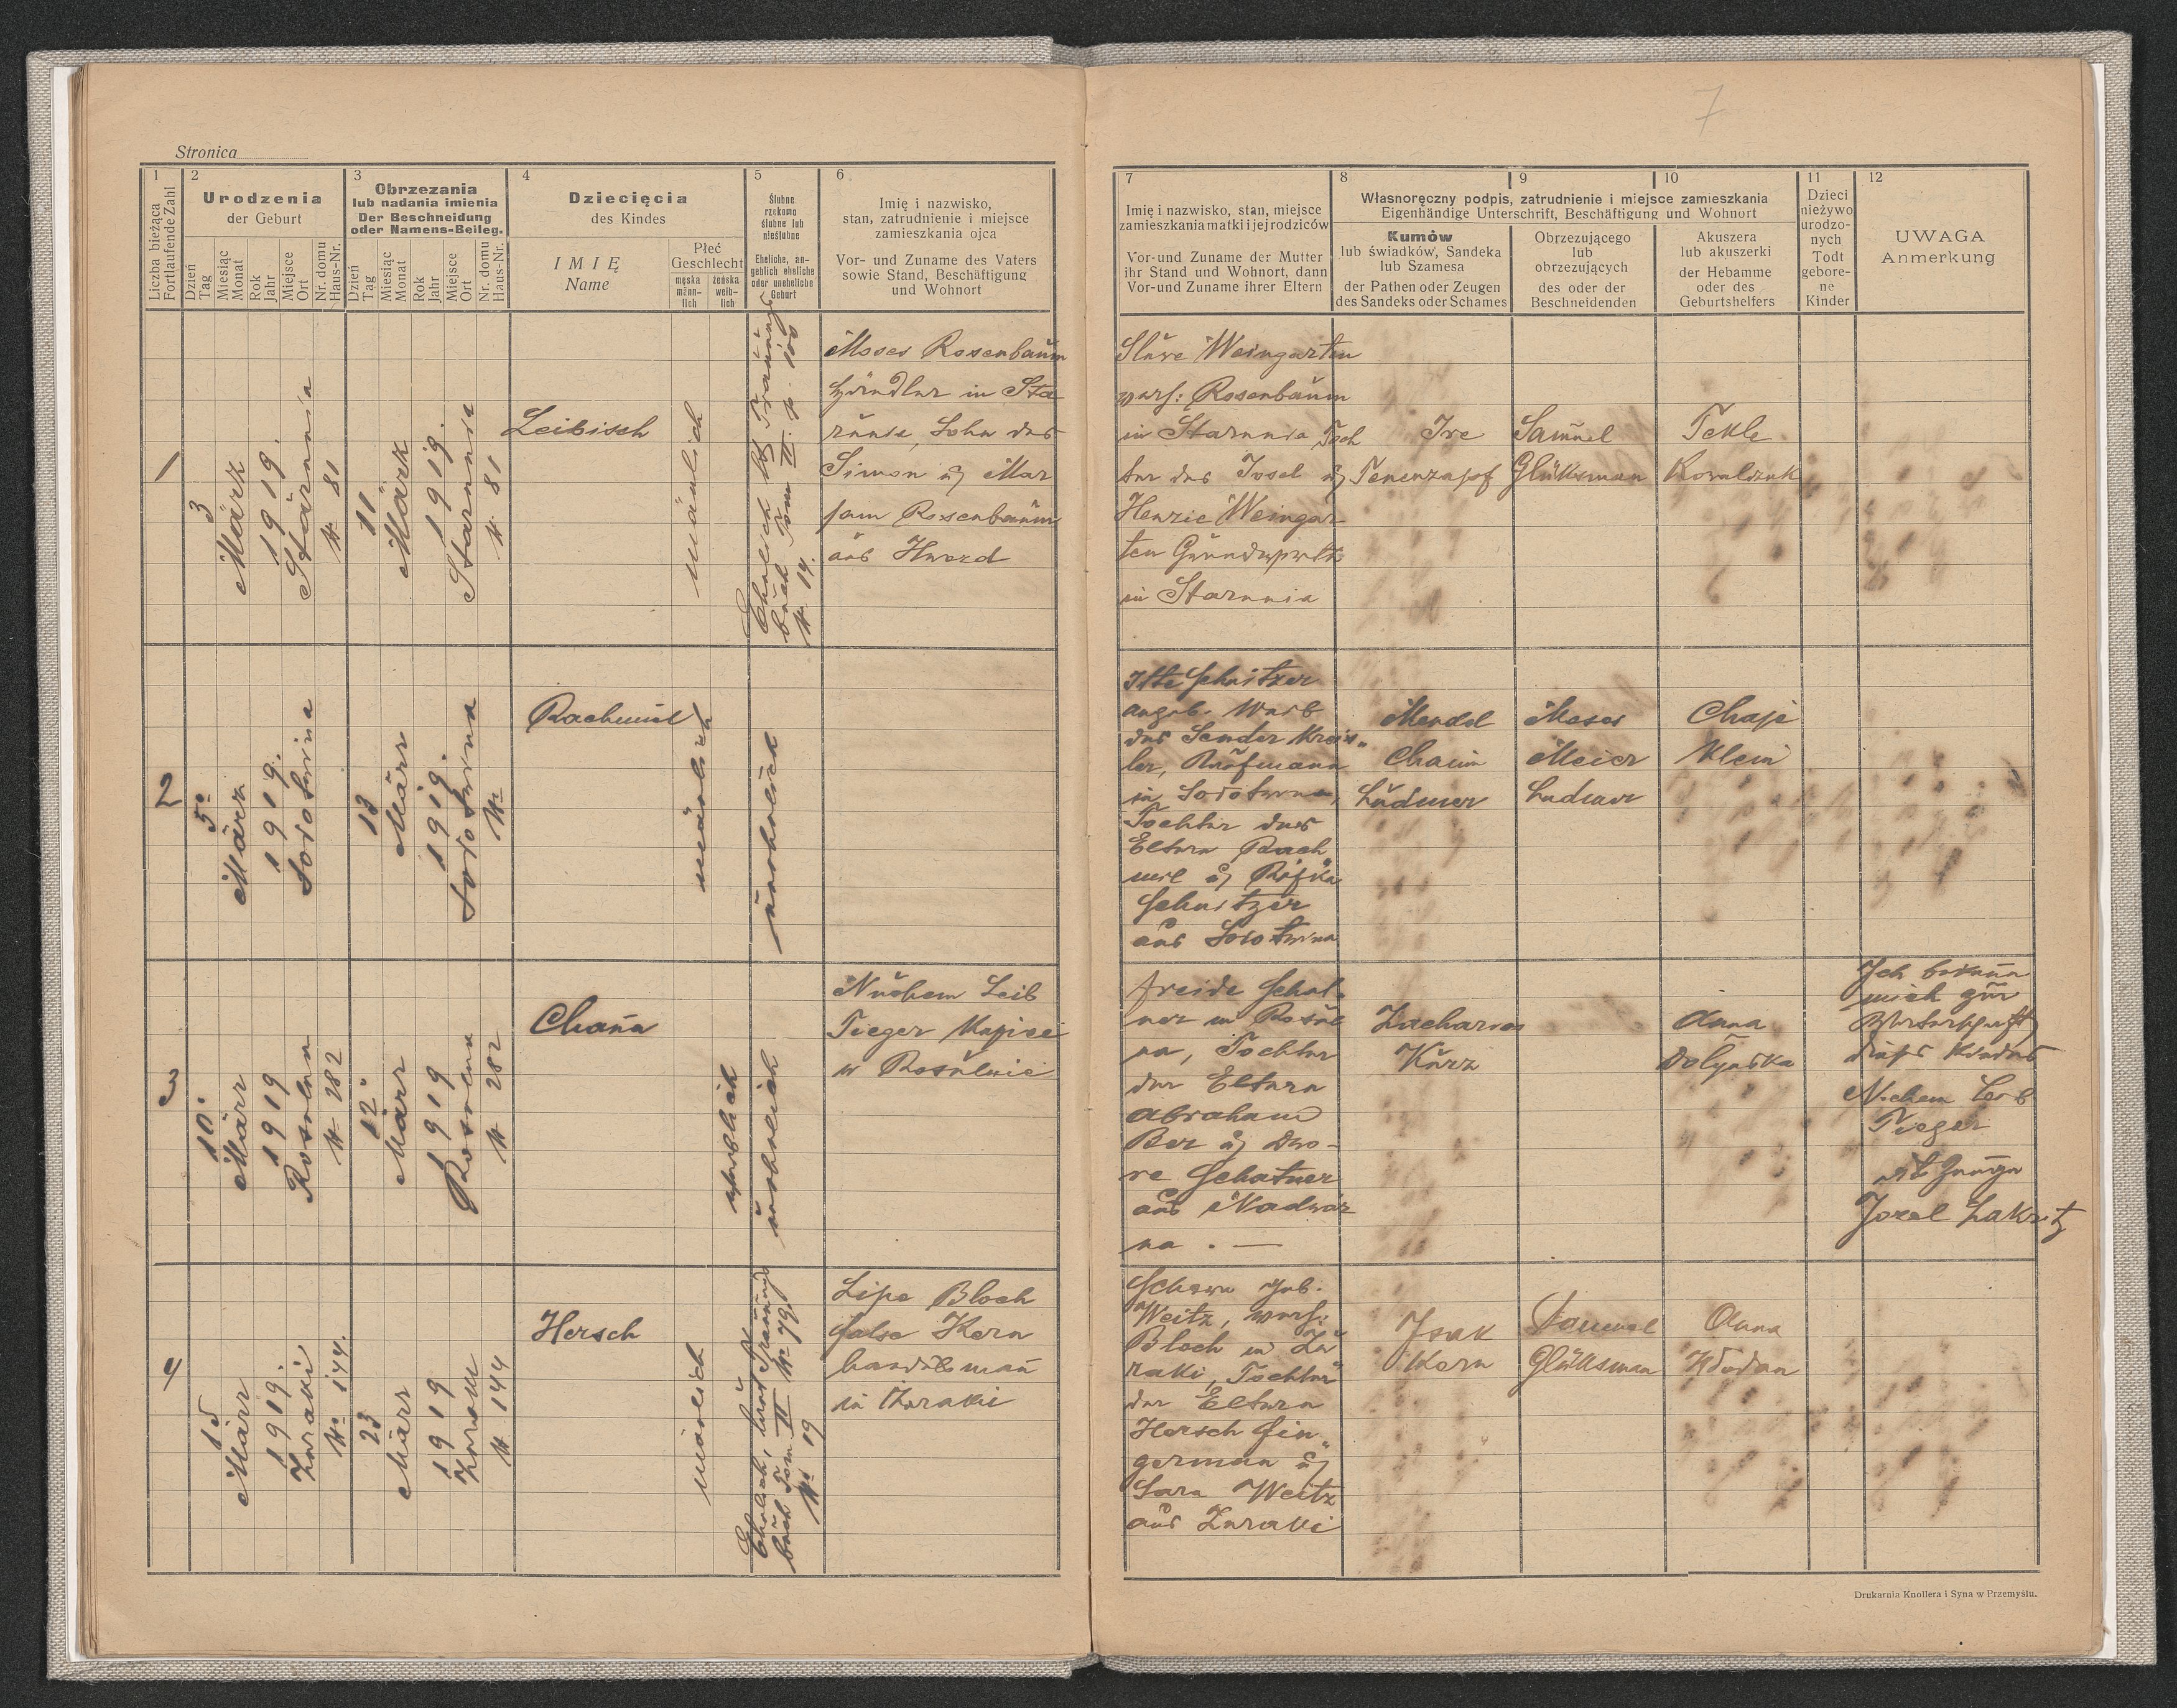 7
Stronica
1
Liczba bieżąca
Fortlaufende Zahl
2
Urodzenia
der Geburt
Dzień
Tag
Miesiąc
Monat
Rok
Jahr
Miejsce
Ort
Nr. domu
Haus-Nr.
3
Obrzezania
lub nadania imienia
Der Beschneidung
oder Namens-Beileg.
Dzień
Tag
Miesiąc
Monat
Rok
Jahr
Miejsce
Ort
Nr. domu
Haus-Nr.
4
Dziecięcia
des Kindes
IMIĘ
Name
Płeć
Geschlecht
męska
männ-
lich
żeńska
weib-
lich
5
Ślubne
rzekomo
ślubne lub
nieślubne
Eheliche, an-
geblich eheliche
oder uneheliche
Geburt
6
Imię i nazwisko,
stan, zatrudnienie i miejsce
zamieszkania ojca
Vor- und Zuname des Vaters
sowie Stand, Beschäftigung
und Wohnort
7
Imię i nazwisko, stan, miejsce
zamieszkania matki i jej rodziców
Vor-und Zuname der Mutter
ihr Stand und Wohnort, dann
Vor-und Zuname ihrer Eltern
8
9
10
Własnoręczny podpis, zatrudnienie i miejsce zamieszkania
Eigenhändige Unterschrift, Beschäftigung und Wohnort
Kumów
lub świadków, Sandeka
lub Szamesa
der Pathen oder Zeugen
des Sandeks oder Schames
Obrzezującego
lub
obrzezujących
des oder der
Beschneidenden
Akuszera
lub akuszerki
der Hebamme
oder des
Geburtshelfers
11
Dzieci
nieżywo
urodzo-
nych
Todt
gebore-
ne
Kinder
12
UWAGA
Anmerkung
1
3
März
1919.
Starunia
N 81
11
März
1919.
Starunia
N 81
Leibisch
mänlich
Ehelich
buch Tom II. p. 100
N 14.
Moses Rosenbaum
Händler in Sta
runia, Sohn des
Simon u. Mar
jam Rosenbaum
aus Hwozd
Weingarten
Rosenbaum
in Starunia Toch
ter des Josel u
Henzie Weingar
ten
in Starunia
Samuel
Glüksman
Tekle
Kowalczuk
2
5
März
1919.
Sołotwina
13
März
1919.
Sołotwina
N
Rachmiel
mänlich
unehelich
Itte Schnitzer
angeb. Weib
des Sender Kreis-
ler, Kaufmann
in Sołotwina,
Tochter des
Eltern Rach
miel u. Rifka
Schnitzer
aus Sołotwina
Mendel
Chaim
Ludmer
Moses
Meier
Ludmer
Chaje
Klein
3
10.
März
1919
Rosulna
N 282
12
März
1919
Rosulna
N 282
Chana
weiblich
unehelich
Nuchem Leib
Tieger
w Rosulnie
Freide Schat-
ner in Rosul
na, Tochter
der Eltern
Abraham
Ber u. Dwo-
re Schatner
aus Nadwór
na. —
Zacharias
Kurz
Anna
Dolynska
Ich bekenne
mich zur
Vaterschaft
dieses Kindes
Nuchem Leib
Tieger
als Zeuge
Josel Lakritz
4
15
März
1919.
Zuraki
N 144.
23
März
1919
Zuraki
N 144
Hersch
mänlich
Ehelich, laut Trauungs
buch Tom II N 79.
N 19
Lipe Bloch
false Kern
Handelsmann
in Zuraki
Schewe geb.
Weitz,
Bloch in Zu
raki, Tochter
der Eltern
Hersch Fin
german u.
Sara Weitz
aus Zuraki
Isak
Korn
Samuel
Glüksman
Anna
Drukarnia Knollera i Syna w Przemyślu.